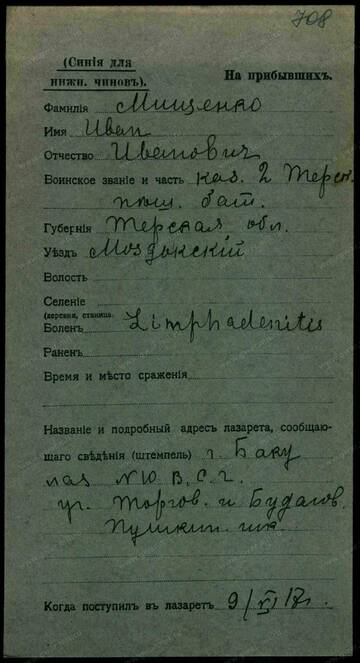 708
(Синія для
нижн. чиновъ).
На прибывшихъ.
Фамилія Мищенко
Имя Иван
Отчество Иванович
Воинское званіе и часть каз. 2 Терск.
пласт. бат.
Губернія Терская обл.
Уѣздъ Моздокскій
Волость
Селеніе
(деревня, станица)
Боленъ Limphadenitis
Раненъ
Время и мѣсто сраженія
Названіе и подробный адресъ лазарета, сообщаю-
щаго свѣдѣнія (штемпель) г. Баку
лаз N10 В. С. Г.
уг. Торгов. и Будагов.
Пушкин. шк.
Когда поступилъ въ лазаретъ 9/VI 17г.